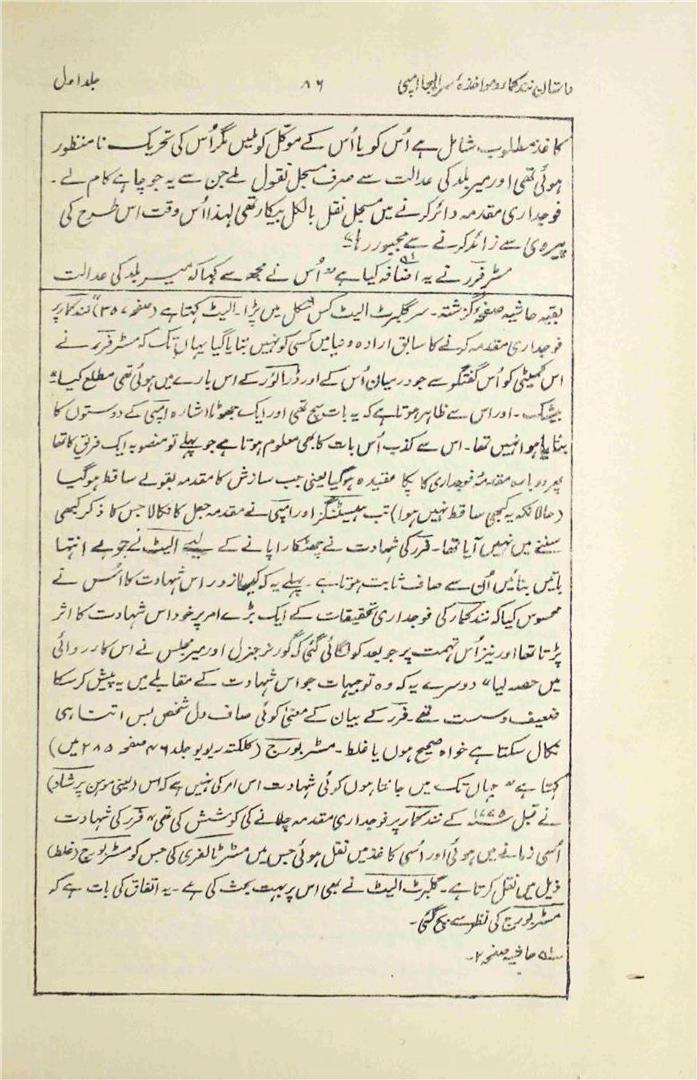 داستان نندکمار و مواخذہ سر الیجا امپی ۸۶ جلد اول
کاغذ مطلوب شامل ہے اُس کو یا اُس کے موکّل کو ملیں مگر اُس کی تحریک نامنظور
ہوئی تھی اور میر بلد کی عدالت سے صرف مسجل نقول ملے جن سے یہ جو چاہے کام لے۔
فوجداری مقدمہ دائر کرنے میں مسجل نقل بالکل بیکار تھی لہذا اُس وقت اس طرح کی
پیروی سے زائد کرنے سے مجبور رہا"
مسٹر فرر نے یہ اضافہ کیا ہے "اُس نے مجھ سے کہا کہ میر بلد کی عدالت
بقیہ حاشیہ صفحہ گزشتہ۔ سر گلبرٹ الیٹ کس شکل میں پڑا۔ الیٹ کہتا ہے (صفحہ ۳۵۷) "نندکمار پر
فوجداری مقدمہ کرنے کا سابق ارادہ دنیا میں کسی کو نہیں بتایا گیا یہاں تک کہ مسٹر فرر نے
اس کمیٹی کو اُس گفتگو سے جو درمیان اُس کے اور ڈرائور کے اس بارے میں ہوئی تھی مطلع کیا"
بیشک۔ اور اس سے ظاہر ہوتا ہے کہ یہ بات سچ تھی اور ایک جھوٹا اشارہ امپی کے دوستوں کا
بنایا ہوا نہیں تھا۔ اس سے کذب اُس بات کا بھی معلوم ہوتا ہے جو پہلے تو منصوبہ ایک فریق کا تھا
پھر دوبارہ مقدمۂ فوجداری کا پکا عقیدہ ہوگیا یعنی جب سازش کا مقدمہ بقولے ساقط ہوگیا
(حالانکہ یہ کبھی ساقط نہیں ہوا) تب ہیسٹنگز اور امپی نے مقدمہ جعل کا نکالا جس کا ذکر کبھی
سننے میں نہیں آیا تھا۔ فرر کی شہادت نے چھٹکارا پانے کے لیے الیٹ نے جو بے انتہا
باتیں بنائیں اُسی سے صاف ثابت ہوتا ہے۔ پہلے یہ کہ کیسا زور اس شہادت کا اُس نے
محسوس کیا کہ نندکمار کی فوجداری تحقیقات کے ایک بڑے امر پر خود اس شہادت کا اثر
پڑتا تھا اور نیز اُس تہمت پر جو بعد کو لگائی گئی کہ گورنر جنرل اور میر مجلس نے اس کارروائی
میں حصہ لیا" دوسرے یہ کہ وہ توجیہات جو اس شہادت کے مقابلے میں یہ پیش کرسکا
ضعیف و سست تھے۔ فرر کے بیان کے معنی کوئی صاف دل شخص بس اتنا ہی
نکال سکتا ہے خواہ صحیح ہوں یا غلط۔ مسٹر بورج (کلکتہ ریویو جلد ۴۶ صفحہ ۲۸۵ میں)
کہتا ہے "جہاں تک میں جانتا ہوں کوئی شہادت اس امر کی نہیں ہے کہ اس (یعنی موہن پرشاد)
نے قبل ۱۷۷۵ء کے نندکمار پر فوجداری مقدمہ چلانے کی کوشش کی تھی" فرر کی شہادت
اُسی زمانے میں ہوئی اور اُسی کاغذ میں نقل ہوئی جس میں مسٹر ٹالفری کی جس کو مسٹر بورج (غلط)
ذیل میں نقل کرتا ہے۔ گلبرٹ الیٹ نے بھی اس پر بہت بحث کی ہے۔ یہ اتفاق کی بات ہے کہ
مسٹر بورج کی نظر سے بچ گئی۔
حاشیہ صفحہ ۲۔